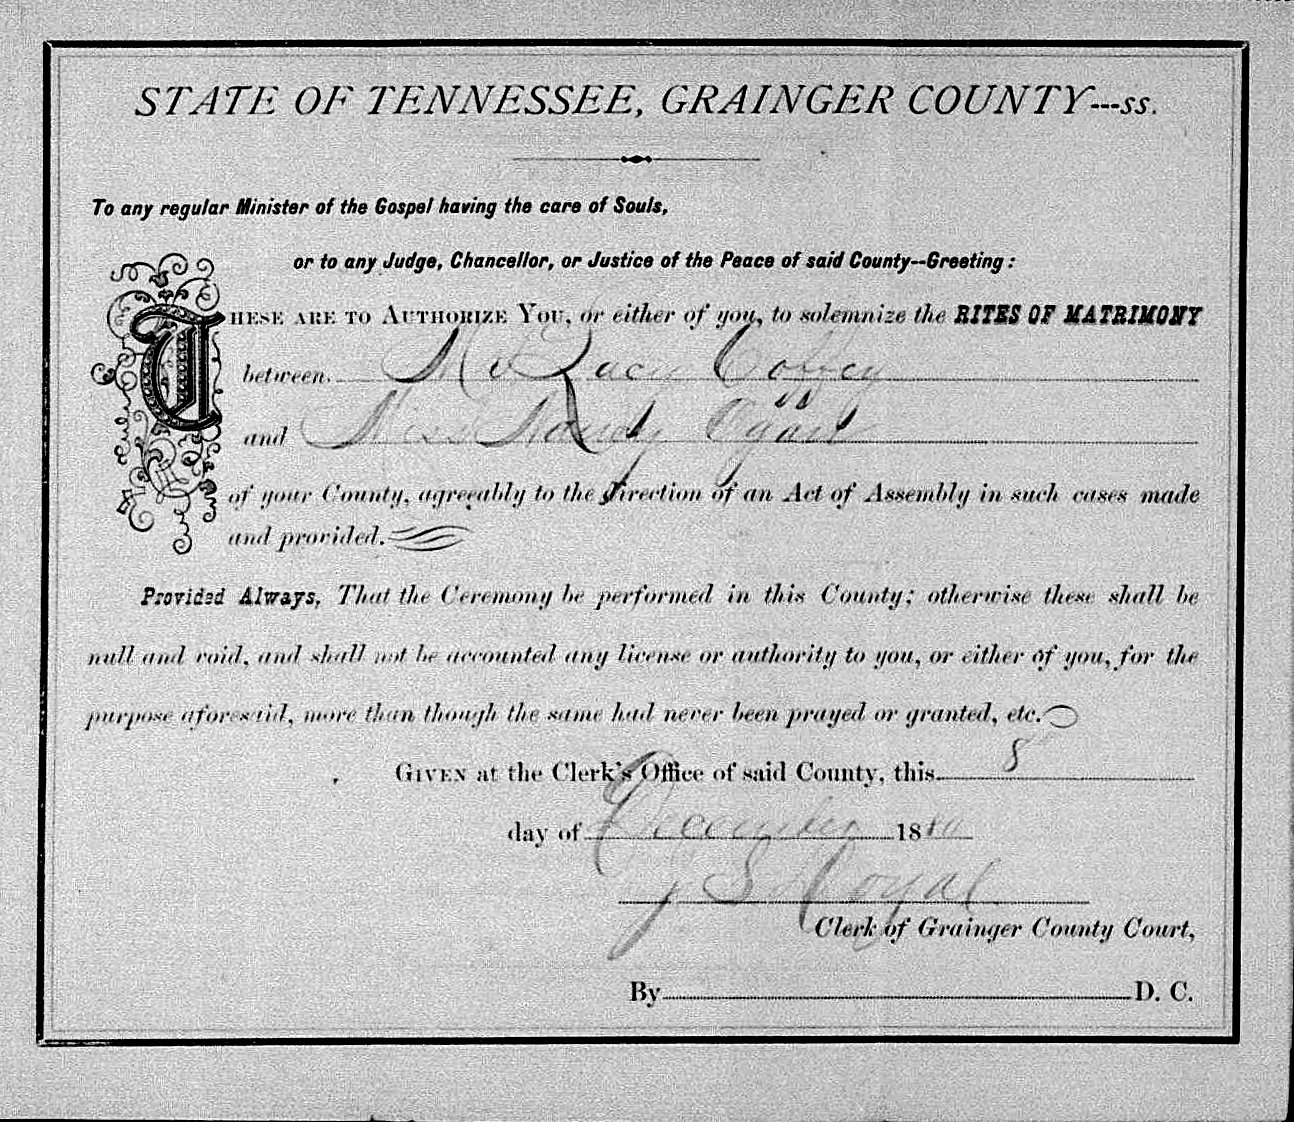 STATE OF TENNESSEE, GRAINGER COUNTY---ss.
To any regular Minister of the Gospel having the care of Souls,
or to any Judge, Chancellor, or Justice of the Peace of said County--Greeting:
THESE ARE TO AUTHORIZE YOU, or either of you, to solemnize the RITES OF MATRIMONY
between Mr Zacy Coffey
and Miss
of your County, agreeably to the direction of an Act of Assembly in such cases made
and provided.
Provided Always, That the Ceremony be performed in this County; otherwise these shall be
null and void, and shall not be accounted any license or authority to you, or either of you, for the
purpose aforesaid, more than though the same had never been prayed or granted, etc.
GIVEN at the Clerk's Office of said County, this 8
day of December 1880
J S Noyal
Clerk of Grainger County Court,
By D. C.